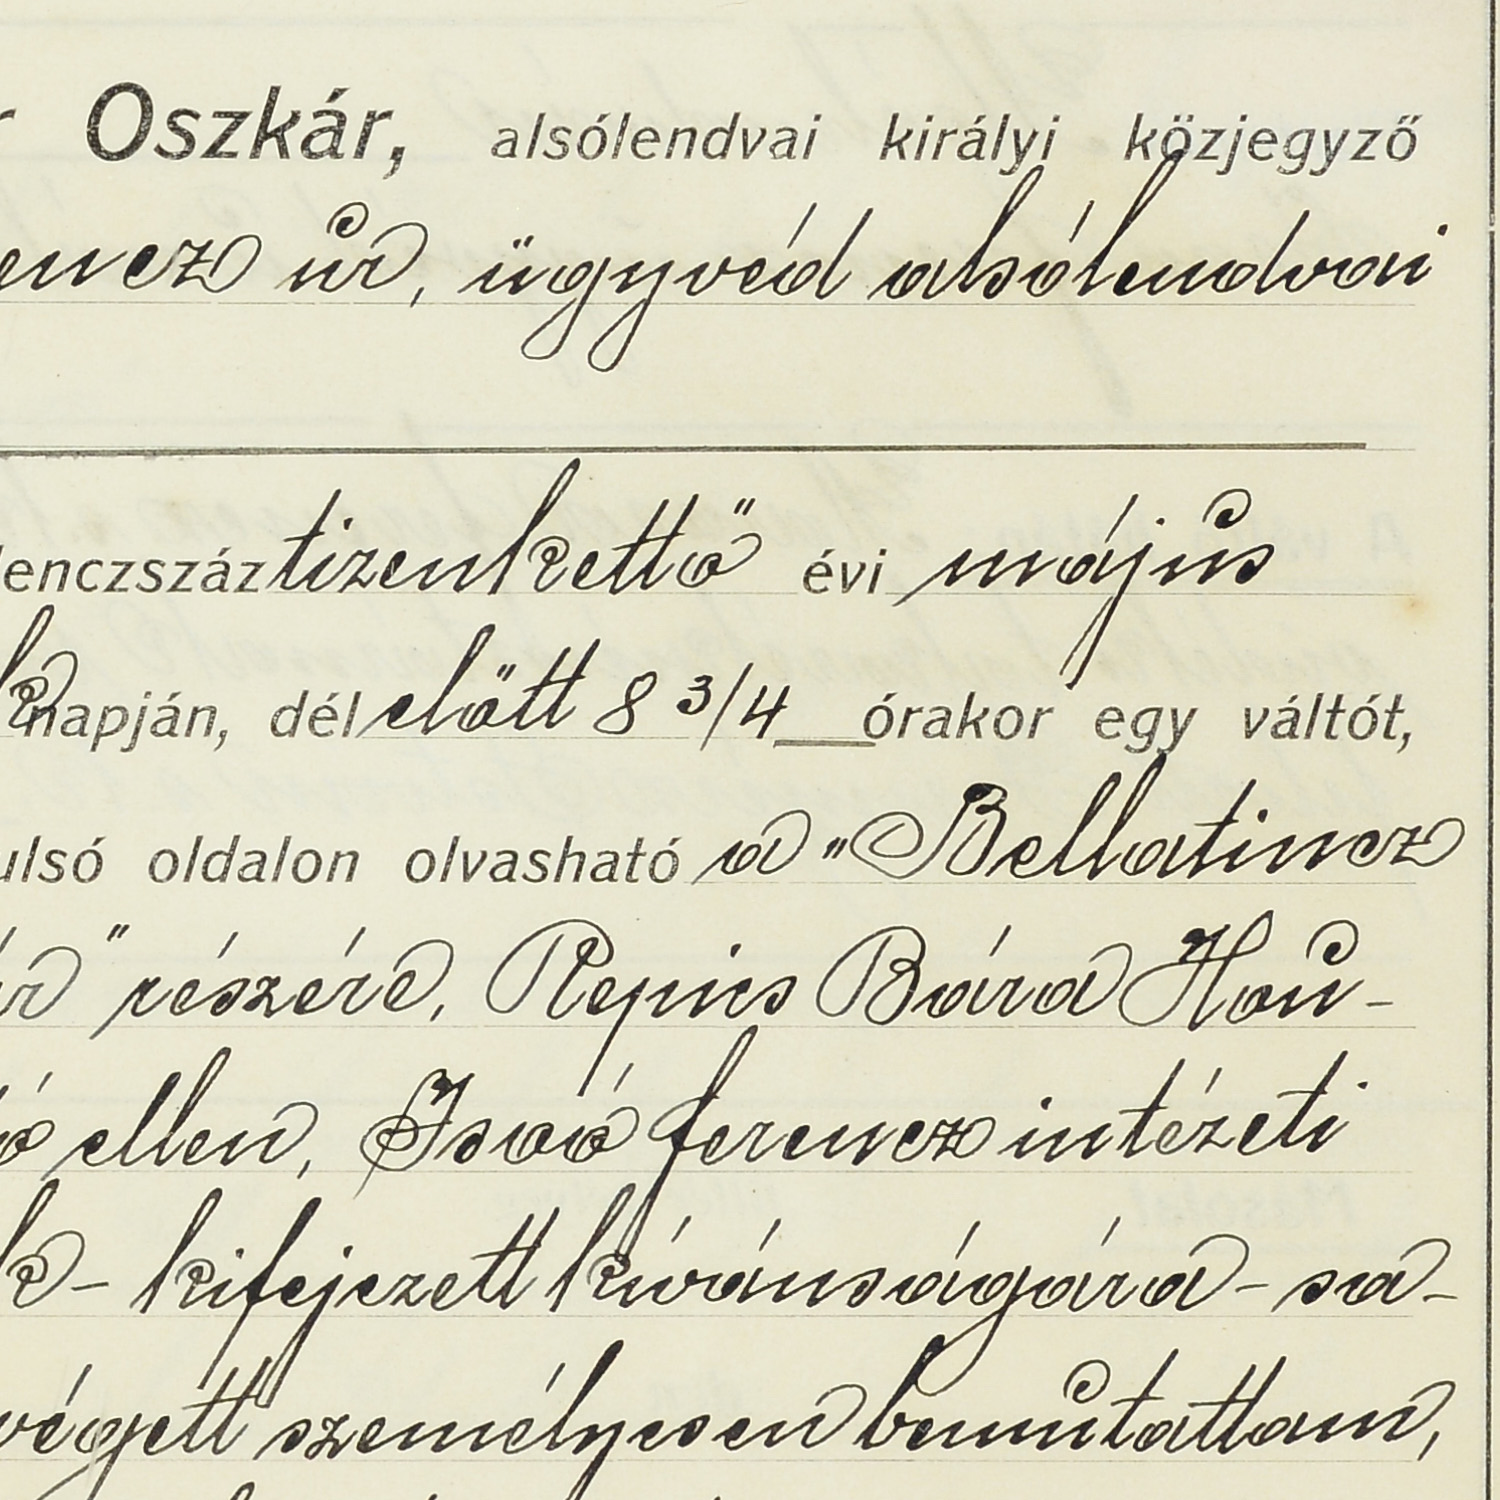 Oszkár, alsólendvai királyi közjegyző
encz úr, ügyvéd alsólendvai
lenczszáz tizenkettő évi május
napján, dél előtt 8 3/4 órakor egy váltót,
ulsó oldalon olvasható a "Bellatincz
ár" részére, Repics Bára Hou-
ó ellen, Isoó ferencz intézeti
k - kifejezett kívánságára - sa-
végett személyesen bemutattam,